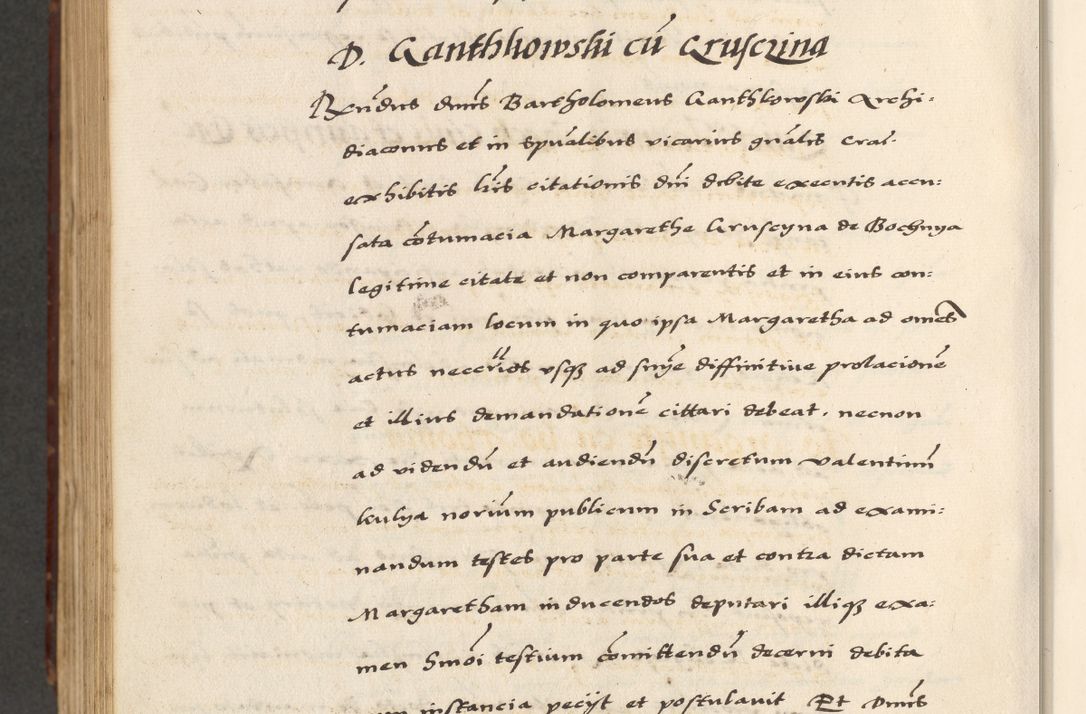 D. Ganthkowski cũ Grusczina
Rñdus dñs Bartholomeus Ganthkowski Archi:
diaconus et in spũalibus vicarius gñalis Crac̃.
exhibitis lr̃is citationis dñi debite executis accu:
sata cõtumacia Margarethe Gruscyna de Bochnya
legitime citate et non comparentis et in eius con:
tumaciam locum in quo ipsa Margaretha ad omẽs
actus neccrios vsq3 ad snỹe diffinitiue prolacionẽ
et illius demandationẽ cittari debeat. necnon
ad videndũ et audiendũ discretum Valentinũ
kulya noriũm publicum in Scribam ad exami:
nandum testes pro parte sua et contra dictam
Margaretham inducendos deputari illiq3 exa:
men Smõi testium cõmittendũ decerni debita
cum instancia peciit et postulauit Et Dñus